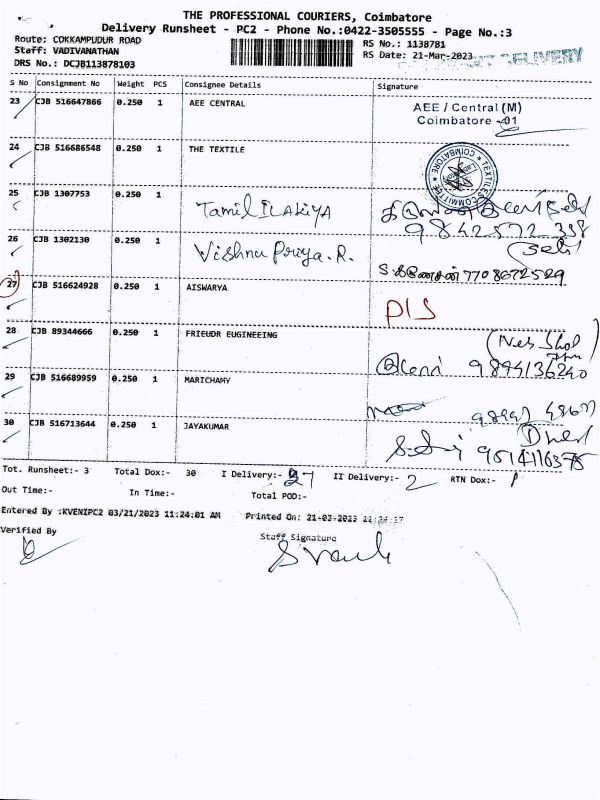 THE PROFESSIONAL COURIERS, Coimbatore
Delivery Runsheet - PC2 - Phone No.:0422-3505555 - Page No.:3
Route: COKKAMPUDUR ROAD
RS No.: 1138781
Staff: VADIVANATHAN
RS Date: 21-Mar-2023
DELIVERY
DRS No.: DCJB113878103
S No Consignment No Weight PCS Consignee Details Signature
23 CJB 516647866 0.250 1 AEE CENTRAL
AEE / Central (M)
Coimbatore -01
24 CJB 516686548 0.250 1 THE TEXTILE
TEXTILES COMMITTEE * COIMBATORE *
25 CJB 1307753 0.250 1 Tamil ILAKIYA
26 CJB 1302130 0.250 1 Vishnu Priya. R.
7708672529
27 CJB 516624928 0.250 1 AISWARYA
DIS
28 CJB 89344666 0.250 1 FRIEUDR EUGINEEING
9894136240
29 CJB 516689959 0.250 1 MARICHAMY
30 CJB 516713644 0.250 1 JAYAKUMAR
9514116375
Tot. Runsheet:- 3 Total Dox:- 30 I Delivery:- 27 II Delivery:- 2 RTN Dox:- 1
Out Time:- In Time:- Total POD:-
Entered By :KVENIPC2 03/21/2023 11:24:01 AM Printed On: 21-03-2023
Verified By Staff Signature